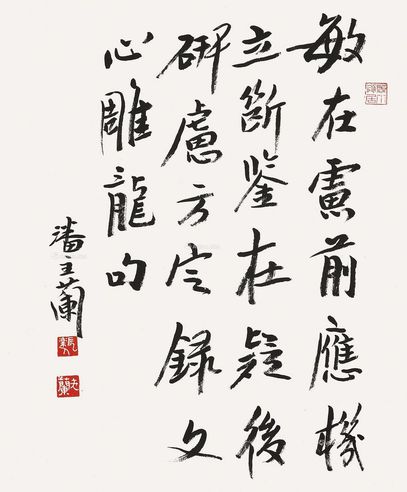 敏在慮前應機
立斷鉴在疑後
研慮方定錄文
心雕龍句
潘主蘭